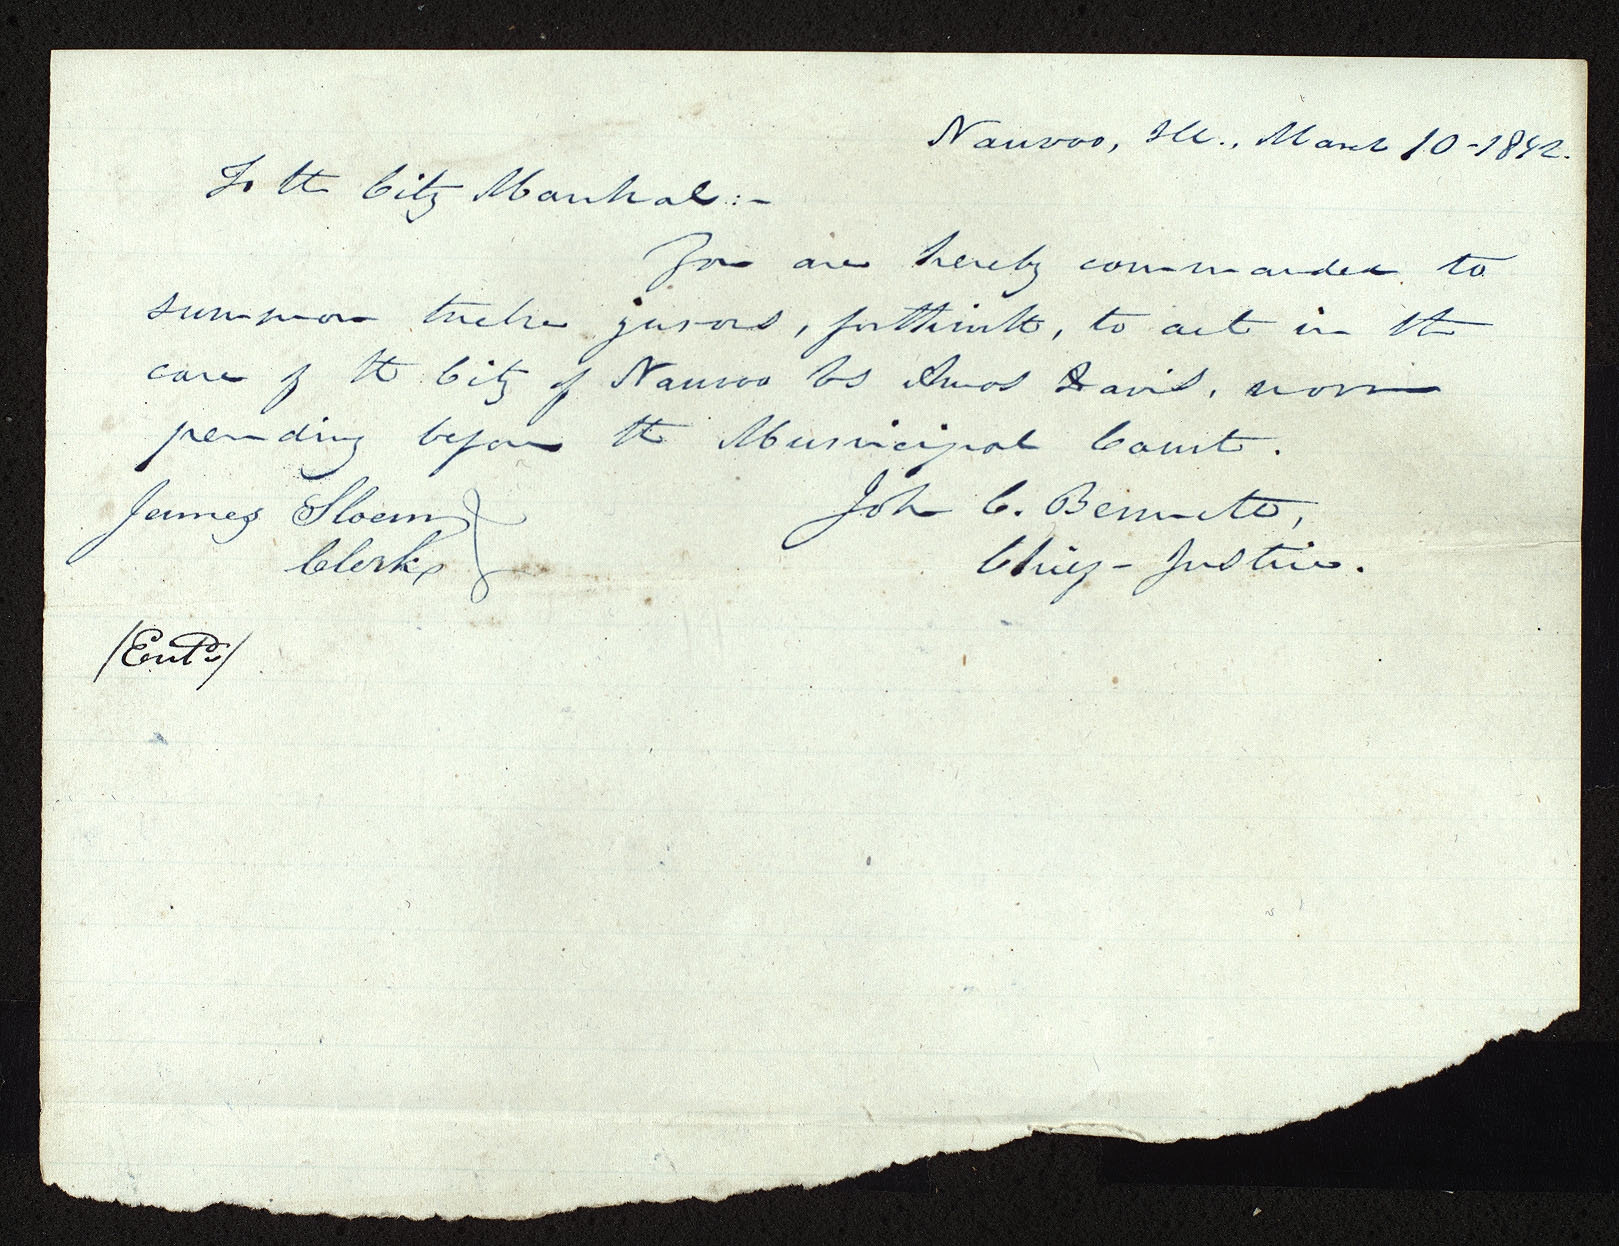 Nauvoo, Ill., March 10-1842.
To the City Marshal:-
You are hereby commanded to
summon twelve jurors, forthwith, to act in the
case of the City of Nauvoo vs Amos Davis, now
pending before the Municipal Court.
James Sloan John C. Bennett,
Clerk Chief-Justice.
/Entd/